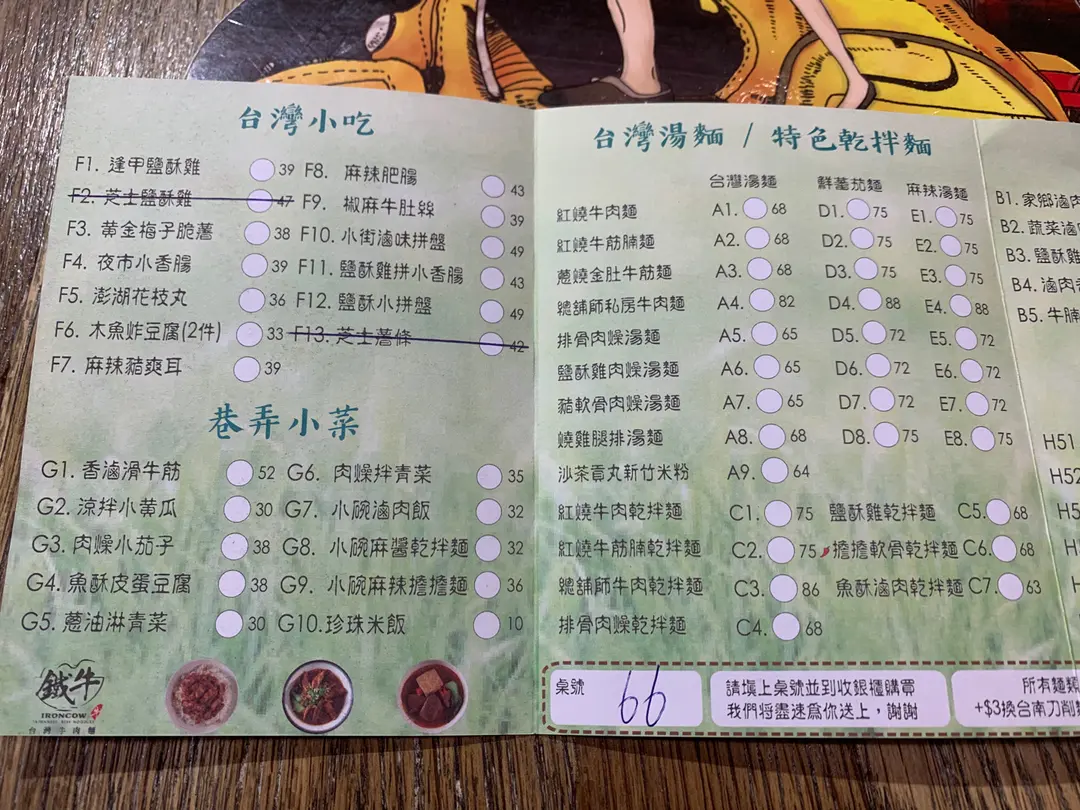 台灣小吃
F1. 逢甲鹽酥雞 39
F2. 芝士鹽酥雞 47
F3. 黄金梅子脆薯 38
F4. 夜市小香腸 39
F5. 澎湖花枝丸 36
F6. 木魚炸豆腐(2件) 33
F7. 麻辣豬爽耳 39
F8. 麻辣肥腸 43
F9. 椒麻牛肚絲 39
F10. 小街滷味拼盤 49
F11. 鹽酥雞拼小香腸 43
F12. 鹽酥小拼盤 49
F13. 芝士薯條 42
巷弄小菜
G1. 香滷滑牛筋 52
G2. 涼拌小黄瓜 30
G3. 肉燥小茄子 38
G4. 魚酥皮蛋豆腐 38
G5. 蔥油淋青菜 30
G6. 肉燥拌青菜 35
G7. 小碗滷肉飯 32
G8. 小碗麻醬乾拌麵 32
G9. 小碗麻辣擔擔麵 36
G10.珍珠米飯 10
鐵牛
IRONCOW
TAIWANESE BEEF NOODLES
台灣牛肉麵
台灣湯麵 / 特色乾拌麵
台灣湯麵 鮮蕃茄麵 麻辣湯麵
紅燒牛肉麵 A1. 68 D1. 75 E1. 75
紅燒牛筋腩麵 A2. 68 D2. 75 E2. 75
蔥燒金肚牛筋麵 A3. 68 D3. 75 E3. 75
總舖師私房牛肉麵 A4. 82 D4. 88 E4. 88
排骨肉燥湯麵 A5. 65 D5. 72 E5. 72
鹽酥雞肉燥湯麵 A6. 65 D6. 72 E6. 72
豬軟骨肉燥湯麵 A7. 65 D7. 72 E7. 72
燒雞腿排湯麵 A8. 68 D8. 75 E8. 75
沙茶貢丸新竹米粉 A9. 64
紅燒牛肉乾拌麵 C1. 75 鹽酥雞乾拌麵 C5. 68
紅燒牛筋腩乾拌麵 C2. 75 擔擔軟骨乾拌麵 C6. 68
總舖師牛肉乾拌麵 C3. 86 魚酥滷肉乾拌麵 C7. 63
排骨肉燥乾拌麵 C4. 68
桌號 66
請填上桌號並到收銀櫃購買
我們將盡速為你送上，謝謝
所有麵類
+$3換台南刀削
B1. 家鄉滷肉
B2. 蔬菜滷
B3. 鹽酥雞
B4. 滷肉
B5. 牛腩
H51
H52
H5
H